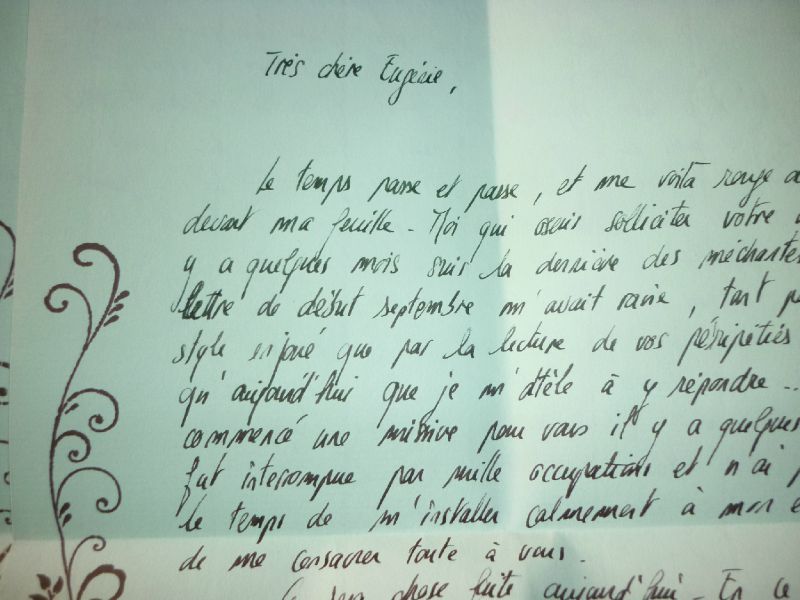 Très chère Eugénie,
Le temps passe et passe, et me voilà rouge
devant ma feuille - Moi qui osais solliciter votre
y a quelques mois suis la dernière des méchantes
lettre de début septembre m'avait ravie, tant
style enjoué que par la lecture de vos péripéties
qu'aujourd'hui que je m'attèle à y répondre...
commencé une missive pour vous il y a quelques
fut interrompue par mille occupations et n'ai
le temps de m'installer calmement à mon
de me consacrer toute à vous.
chose faite aujourd'hui - En ce